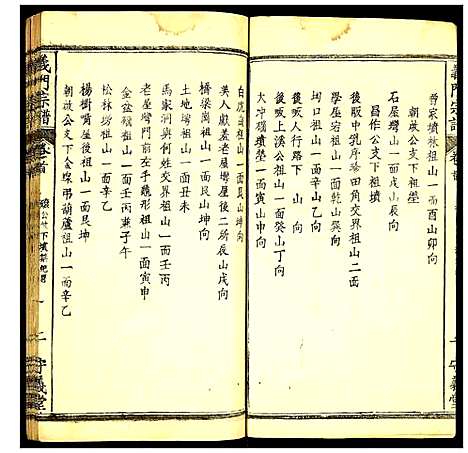 義門宗譜
晉家墳林祖山一面酉山卯向
朝啟公支下祖墳
石屋灣山一面戌山辰向
昌作公支下祖墳
後畈中乳序珍田角交界祖山二面
學屋岩祖山一面山向
凹口祖山一面辛山乙向
後畈人行路下山向
後畈上湾公祖山一面癸山丁向
大冲礄墳塋一面寅山申向
守義堂
白山祖山一面艮山坤向
美人獻羞老屋塆屋後二所辰山戌向
橋梁崗祖山一面艮山坤向
土地塆祖山一面丑未
馬家洞與何姓交界祖山一面壬丙
老屋塆門前左手龜形祖山一面寅申
金盆嶺祖山一面壬丙兼子午
松林塝祖山一面辛乙
朝啟公支下金線弔葫蘆祖山一面辛乙
楊樹嘴屋後祖山一面艮坤
義門宗譜
卷首
二
守義堂